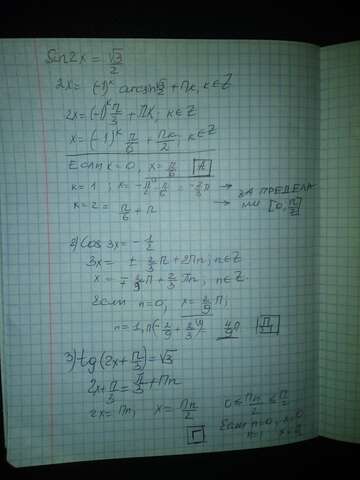 Sin2x = √3/2
2x = (-1)^k arcsin √3/2 + πk, k∈Z
2x = (-1)^k π/3 + πk; k∈Z
x = (-1)^k π/6 + πk/2; k∈Z
Если k=0, x = π/6 А
k=1; x= -π/6 = -2/3π → за предела
k=2 = π/6 + π → ми [0, π/2]
2) Cos 3x = -1/2
3x = ± 2/3π + 2πn; n∈Z
x = ∓ 2/9π + 2/3πn, n∈Z.
Если n=0, x = 2/9π;
n=1, π(-2/9 + 2/3) - 4/9π
3) tg(2x + π/3) = √3
2x + π/3 = π/3 + πn
2x = πn, x = πn/2 0 ≤ πn/2 ≤ π/2
Г Если n=0, x=0
n=1, x=